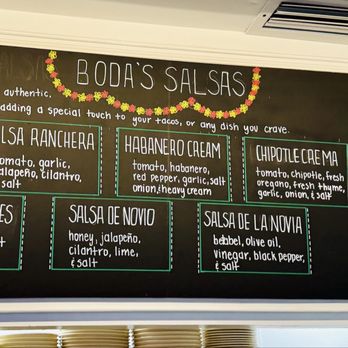 BODA'S SALSAS
authentic.
adding a special touch to your tacos, or any dish you crave.
LSA RANCHERA
omato, garlic,
alapeño, cilantro,
salt
HABANERO CREAM
tomato, habanero,
red pepper, garlic, salt
onion, & heavy cream
CHIPOTLE CREMA
tomato, chipotle, fresh
oregano, fresh thyme,
garlic, onion, & salt
ES
SALSA DE NOVIO
honey, jalapeño,
cilantro, lime,
& salt
SALSA DE LA NOVIA
belabel, olive oil,
vinegar, black pepper,
& salt